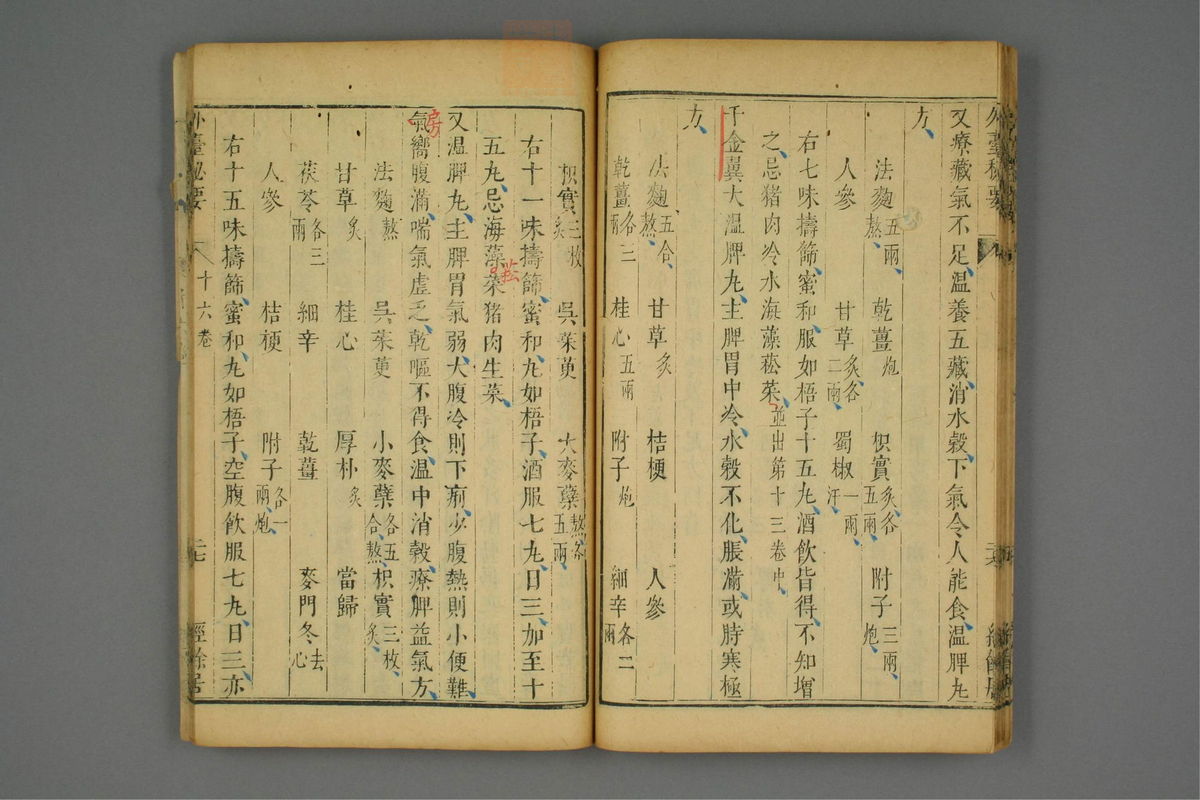 又療藏氣不足溫養五藏消水穀下氣令人能食溫脾丸
方
法麴五兩熬 乾薑炮 枳實炙各五兩 附子三兩炮
人參 甘草炙各二兩 蜀椒一兩汗
右七味擣篩蜜和服如梧子十五丸酒飲皆得不知增
之忌猪肉冷水海藻菘菜並出第十三卷中
千金翼大溫脾丸主脾胃中冷水穀不化脹滿或時寒極
方
法麴五合熬 甘草炙 桔梗 人參
乾薑各三兩 桂心五兩 附子炮 細辛各二兩
枳實三枚炙 吳茱萸 大麥糵熬各五兩
右十一味擣篩蜜和丸如梧子酒服七丸日三加至十
五丸忌海藻菜猪肉生菜
菘
又溫脾丸主脾胃氣弱大腹冷則下痢少腹熱則小便難
房
氣嚮腹滿喘氣虛乏乾嘔不得食溫中消穀療脾益氣方
法麴熬 吳茱萸 小麥糵各五合熬 枳實三枚炙
甘草炙 桂心 厚朴炙 當歸
茯苓各三兩 細辛 乾薑 麥門冬去心
人參 桔梗 附子各一兩炮
右十五味擣篩蜜和丸如梧子空腹飲服七丸日三亦
外臺秘要 十六卷 二七 經餘居